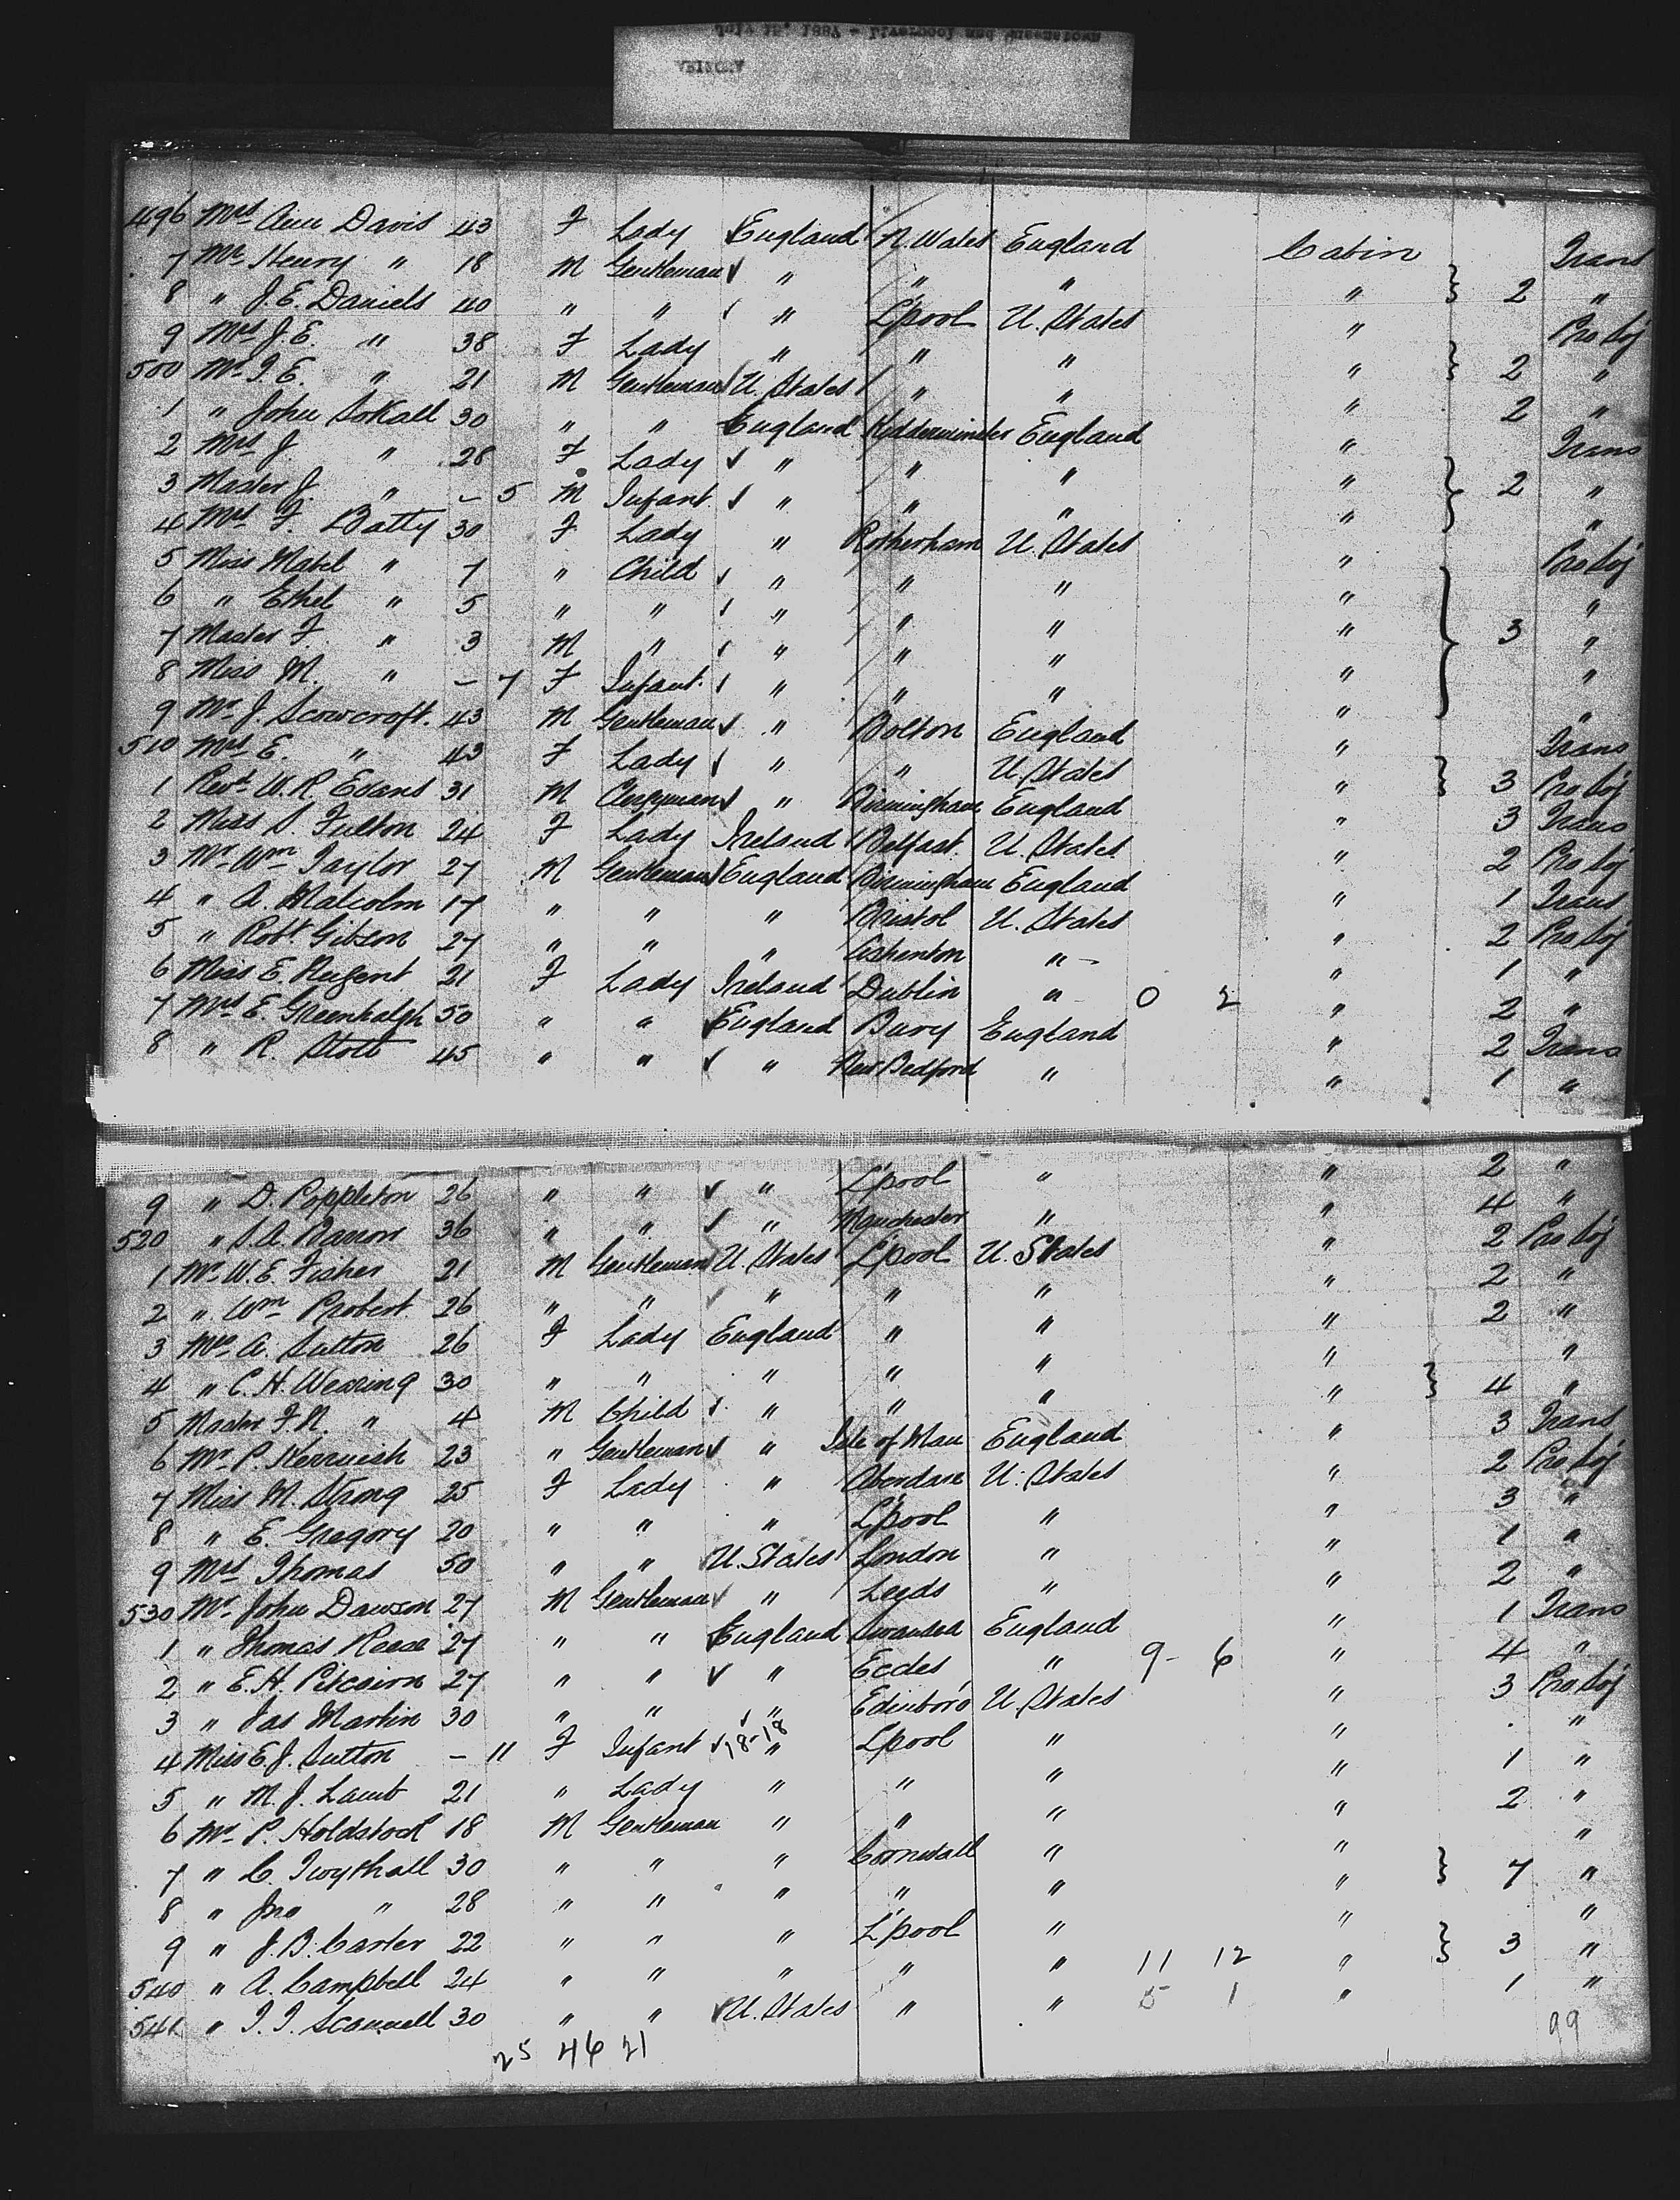 July 15, 1887 - Liverpool and Queenstown
496 Mrs Ann Davis 43 F Lady England N. Wales England Cabin Trans
7 Mr Henry " 18 M Gentleman " " " " 2 "
8 " J.E. Daniels 40 " " " L'pool U. States " Pro Soj
9 Mrs J.E. " 38 F Lady " " " " 2 "
500 Mr I.E. " 21 M Gentleman U. States " " " 2 "
1 " John 30 " " England Kidderminster England " Trans
2 Mrs J. " 28 F Lady " " " " 2 "
3 Master J. " - 5 M Infant " " " " "
4 Mrs F. Batty 30 F Lady " Rotherham U. States " Pro Soj
5 Miss Mabel " 7 " Child " " " " "
6 " Ethel " 5 " " " " " " 3 "
7 Master F. " 3 M " " " " " "
8 Miss M. " - 7 F Infant " " " " "
9 Mr J. Scowcroft 43 M Gentleman " Bolton England " Trans
510 Mrs E. " 43 F Lady " " U. States " 3 Pro Soj
1 Revd W.R. Evans 31 M Clergyman " Birmingham England " 3 Trans
2 Miss S. Fulton 24 F Lady Ireland Belfast U. States " 2 Pro Soj
3 Mr Wm Taylor 27 M Gentleman England Birmingham England " 1 Trans
4 " A. Malcolm 17 " " " Bristol U. States " 2 Pro Soj
5 " Robt Gibson 27 " " " Ashenton " " 1 "
6 Miss E. Nugent 21 F Lady Ireland Dublin " 0 2 " 2 "
7 Mrs E. Greenhalgh 50 " " England Bury England " 2 Trans
8 " R. Stott 45 " " " New Bedford " " 1 "
9 " D. Poppleton 26 " " " L'pool " " 2 "
520 " S.A. Barron 36 " " " Manchester " " 4 "
1 Mr W.E. Fisher 21 M Gentleman U. States L'pool U. States " 2 Pro Soj
2 " Wm Probert 26 " " " " " " 2 "
3 Mrs A. Sutton 26 F Lady England " " " 2 "
4 " C.H. Wearing 30 " " " " " " "
5 Master F.N. " 4 M Child " " " " 4 "
6 Mr P. Kerruish 23 " Gentleman " Isle of Man England " 3 Trans
7 Miss M. Strong 25 F Lady " Aberdare U. States " 2 Pro Soj
8 " E. Gregory 20 " " " L'pool " " 3 "
9 Mrs Thomas 50 " " U. States London " " 1 "
530 Mr John Dawson 27 M Gentleman " Leeds " " 2 "
1 " Thomas Reese 27 " " England Swansea England " 1 Trans
2 " E.H. Pitcairn 27 " " " Eccles " 9 - 6 " 4 "
3 " Jas Martin 30 " " " Edinboro U. States " 3 Pro Soj
4 Miss E.J. Sutton - 11 F Infant 18-18 " L'pool " " "
5 " M.J. Lamb 21 " Lady " " " " 1 "
6 Mr P. Holdstock 18 M Gentleman " " " " 2 "
7 " C. Twythall 30 " " " Cornwall " " "
8 " Jno " 28 " " " " " " 7 "
9 " J.B. Carter 22 " " " L'pool " " "
540 " A. Campbell 24 " " " " " 11 12 " 3 "
541 " J.J. Scannell 30 " " U. States " " 5 1 " 1 "
25 46 21 99